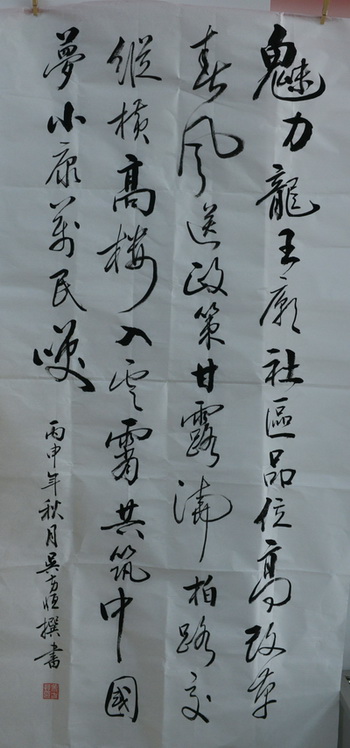 魅力龍王廟社區品位高改革
春風送政策甘露满柏路交
縱横高樓入雲霄共筑中國
夢小康萬民笑
丙申年秋月吴方恒撰書